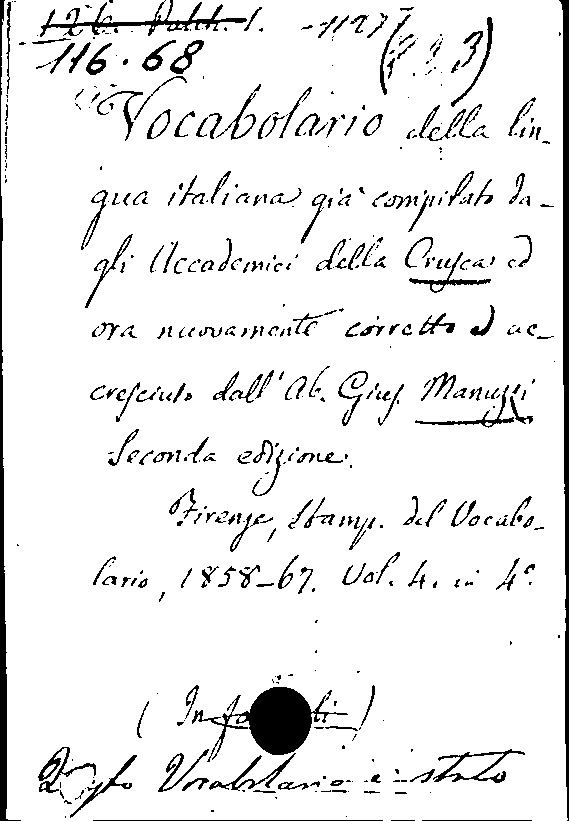 1127
116.68
Vocabolario della lin-
gua italiana già compilato da-
gli Accademici della Crusca ed
ora nuovamente corretto ed ac-
cresciuto dall' Ab. Gius. Manuzzi
Seconda edizione.
Firenze, Stamp. del Vocabo-
lario, 1858-67. Vol. 4. in 4°.
Questo Vocabolario è stato